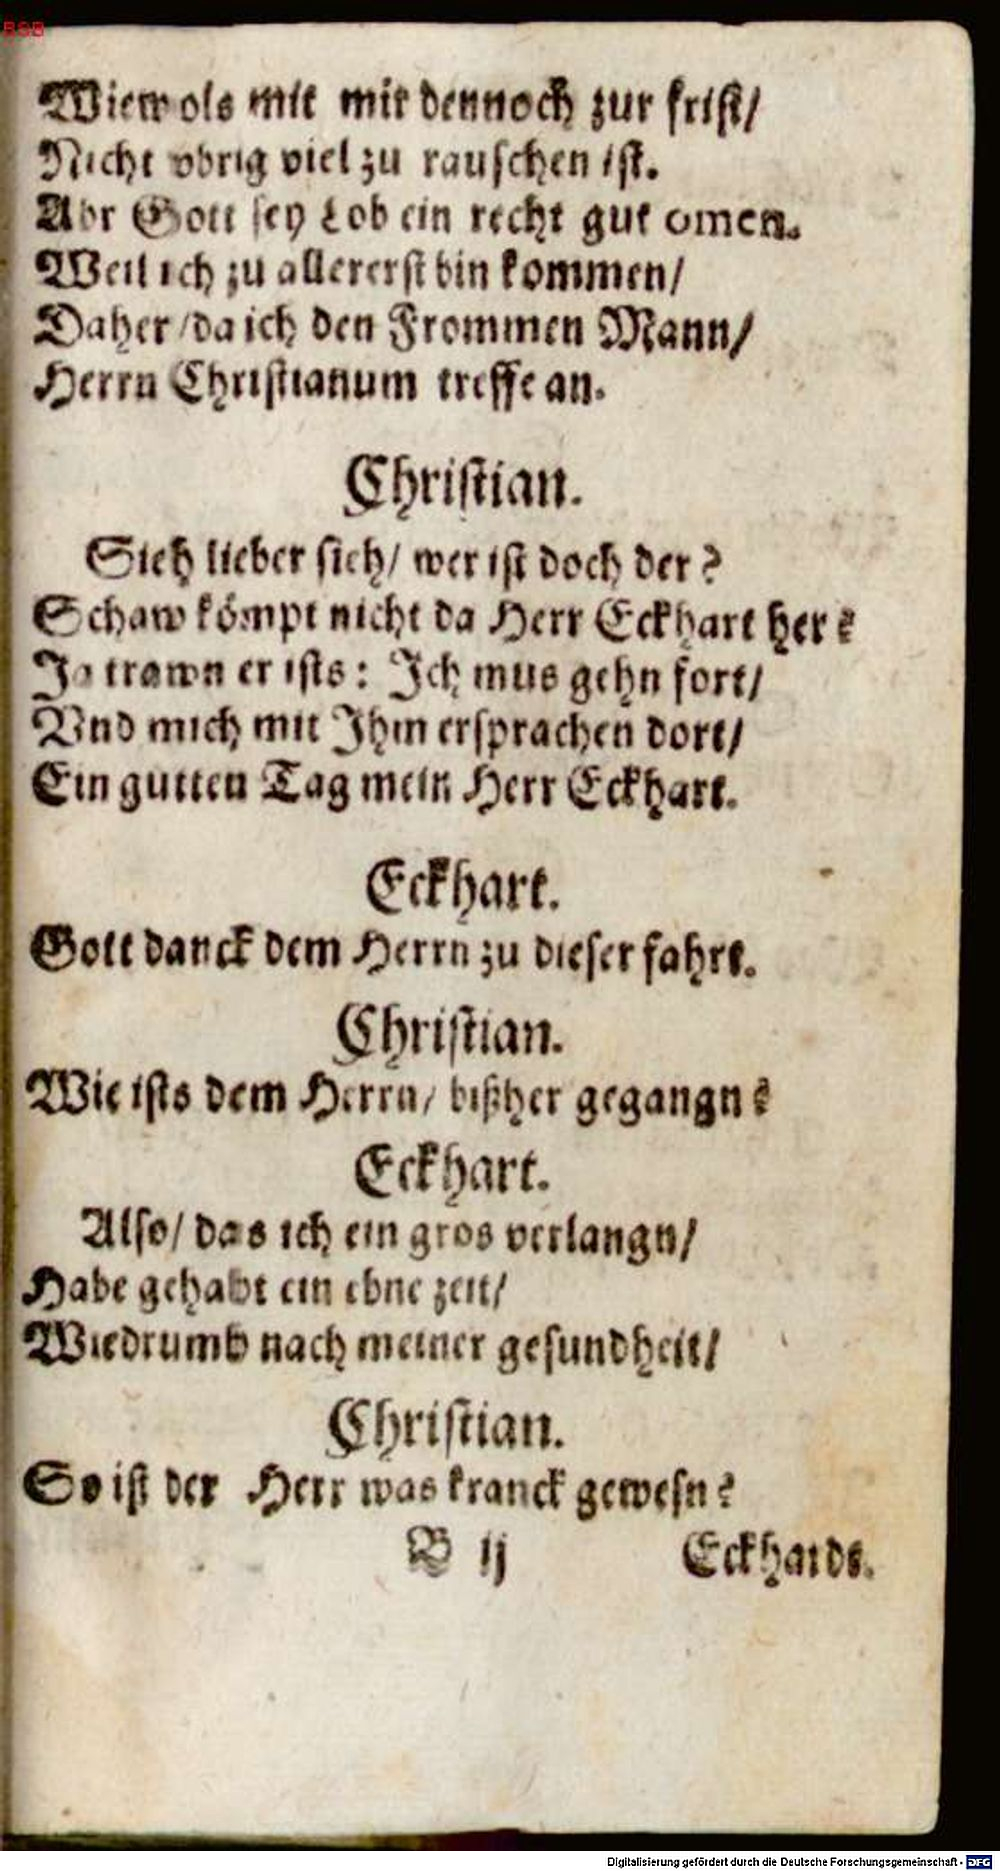 BSB
Wiewols mit mir dennoch zur frist/
Nicht vbrig viel zu rauschen ist.
Abr Gott sey Lob ein recht gut omen.
Weil ich zu allererst bin kommen/
Daher/da ich den Frommen Mann/
Herrn Christianum treffe an.
Christian.
Sieh lieber sieh/ wer ist doch der?
Schaw kömpt nicht da Herr Eckhart her?
Ja trawn er ists: Ich mus gehn fort/
Vnd mich mit Ihm ersprachen dort/
Ein gutten Tag mein Herr Eckhart.
Eckhart.
Gott danck dem Herrn zu dieser fahrt.
Christian.
Wie ists dem Herrn/ bißher gegangn?
Eckhart.
Also/ das ich ein gros verlangn/
Habe gehabt ein ebne zeit/
Wiedrumb nach meiner gesundheit/
Christian.
So ist der Herr was kranck gewesn?
B ij Eckhards.
Digitalisierung gefördert durch die Deutsche Forschungsgemeinschaft - DFG